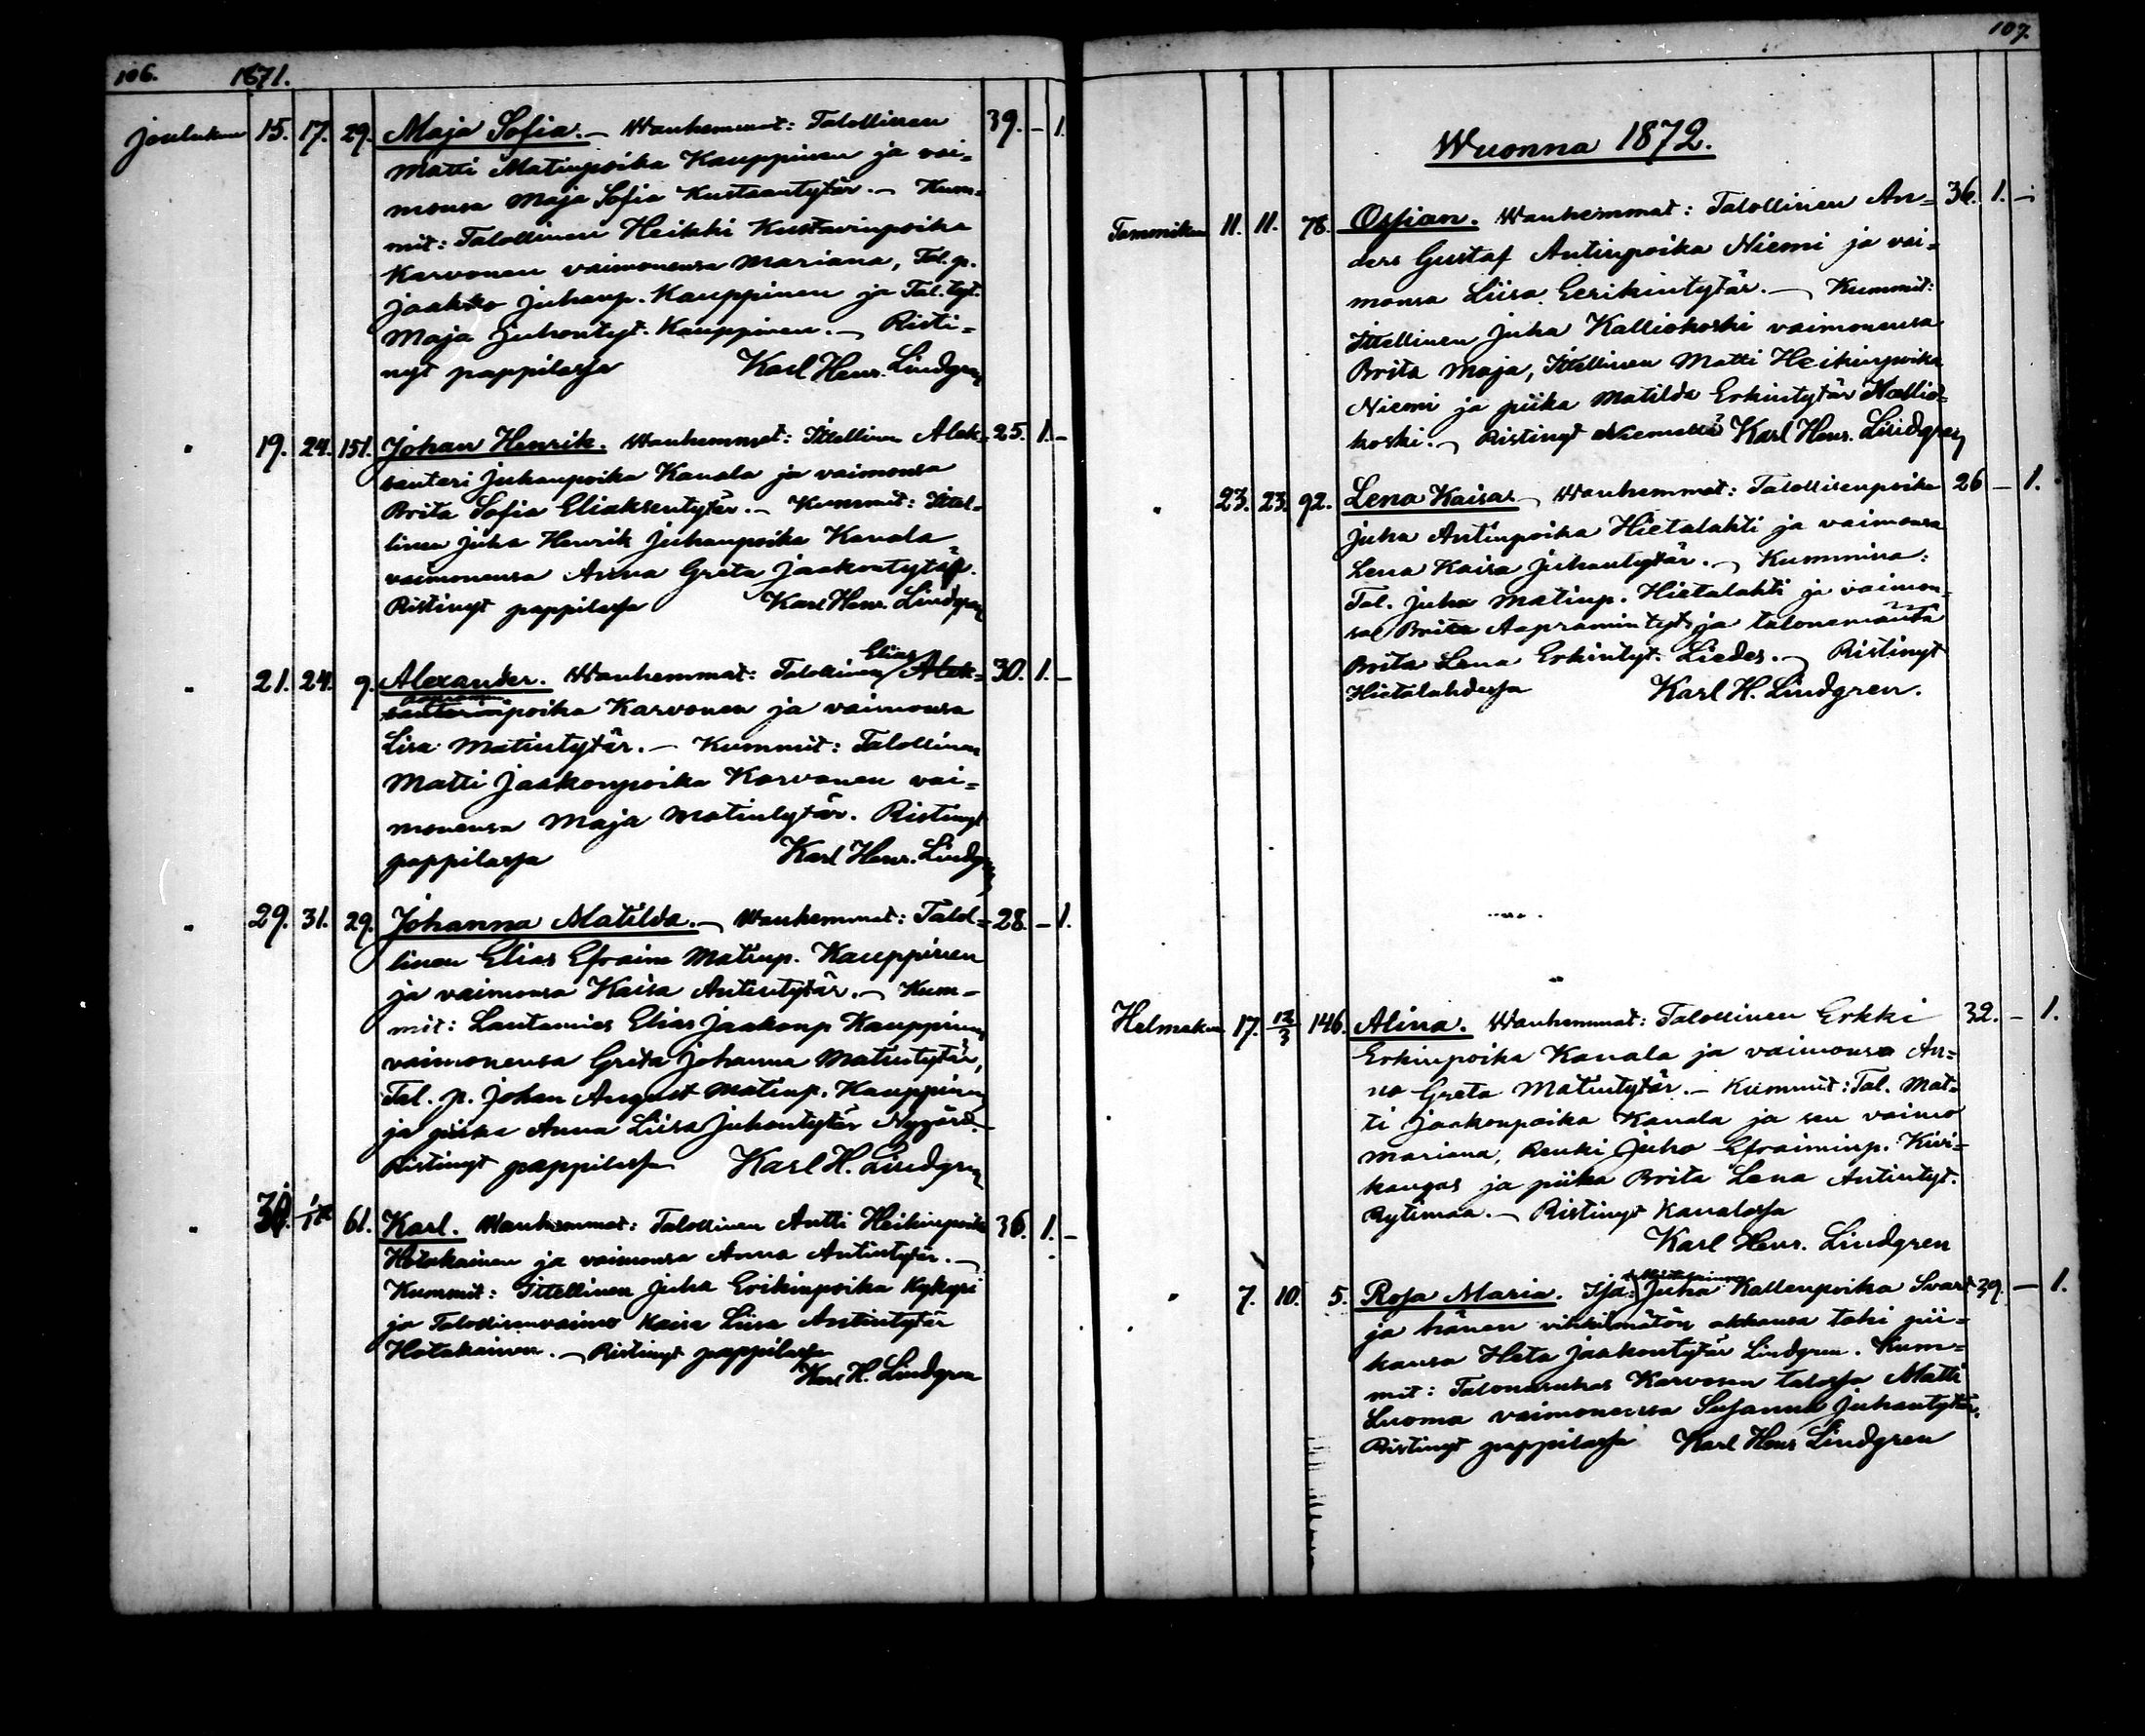 106. 1871.
Joulukuu 15. 17. 29. Maja Sofia. — Wanhemmat: Talollinen 39. – 1.
Matti Matinpoika Kauppinen ja vai=
monsa Maja Sofia Kustaantytär. — Kum=
mit: Talollinen Heikki Kustavinpoika
Karvonen vaimonensa Mariana, Tal. p.
Jaakko Juhanp. Kauppinen ja Tal. tyt.
Maja Juhontyt. Kauppinen. — Risti=
nyt pappilassa Karl Henr. Lindgren
" 19. 24. 151. Johan Henrik. Wanhemmat: Itellinen Alek= 25. 1. –
santeri Juhanpoika Kanala ja vaimonsa
Brita Sofia Eliaksentytär. — Kummit: Itel=
linen Juha Henrik Juhanpoika Kanala
vaimonensa Anna Greta Jaakontytär.
Ristinyt pappilassa Karl Henr. Lindgren
Elias
" 21. 24. 9. Alexander. Wanhemmat: Talollinen Alek= 30. 1. –
santerinpoika Karvonen ja vaimonsa
Lisa Matintytär. — Kummit: Talollinen
Matti Jaakonpoika Karvonen vai=
monensa Maja Matintytär. Ristinyt
pappilassa Karl Henr. Lindgren
" 29. 31. 29. Johanna Matilda. — Wanhemmat: Talol= 28. – 1.
linen Elias Efraim Matinp. Kauppinen
ja vaimonsa Kaisa Antintytär. — Kum=
mit: Lautamies Elias Jaakonp Kauppinen
vaimonensa Greta Johanna Matintytär,
Tal. p. Johan August Matinp. Kauppinen
ja piika Anna Liisa Juhontytär Nygård.
Ristinyt pappilassa Karl H. Lindgren
" 30. 61. Karl. Wanhemmat: Talollinen Antti Heikinpoika 36. 1. –
Hotakainen ja vaimonsa Anna Antintytär. —
Kummit: Itellinen Juha Erikinpoika Kykyri
ja Talollisenvaimo Kaisa Liisa Antintytär
Hotakainen. — Ristinyt pappilassa
Karl H. Lindgren
107.
Wuonna 1872.
Tammikuu 11. 11. 78. Ossian. Wanhemmat: Talollinen An= 36. 1. –
ders Gustaf Antinpoika Niemi ja vai=
monsa Liisa Eerikintytär. — Kummit:
Itellinen Juha Kalliokoski vaimonensa
Brita Maja, Itellinen Matti Heikinpoika
Niemi ja piika Matilda Erkintytär Kallio=
koski. — Ristinyt Niemellä Karl Henr. Lindgren
" 23. 23. 92. Lena Kaisa. — Wanhemmat: Talollisenpoika 26 – 1.
Juha Antinpoika Hietalahti ja vaimonsa
Lena Kaisa Juhantytär. — Kummina:
Tal. Juha Matinp. Hietalahti ja vaimon=
sa Brita Aapramintyt. ja talonemäntä
Brita Lena Erkintyt. Liedes. — Ristinyt
Hietalahdessa Karl H. Lindgren.
Helmikuu 17. 12/3 146. Alina. Wanhemmat: Talollinen Erkki 32. – 1.
Erkinpoika Kanala ja vaimonsa An=
na Greta Matintytär. — Kummit: Tal. Mat=
ti Jaakonpoika Kanala ja sen vaimo
Mariana, Renki Juho Efraiminp. Kivi=
kangas ja piika Brita Lena Antintyt.
Rytimaa. — Ristinyt Kanalassa
Karl Henr. Lindgren
" 7. 10. 5. Rosa Maria. Isä: Juha Kallenpoika Svart 39. — 1.
ja hänen vihkimätön akkansa tahi pii=
kansa Heta Jaakontytär Lindgren. Kum=
mit: Talonasukas Karvosen talossa Matti
Luoma vaimonensa Susanna Juhantytär.
Ristinyt pappilassa Karl Henr Lindgren